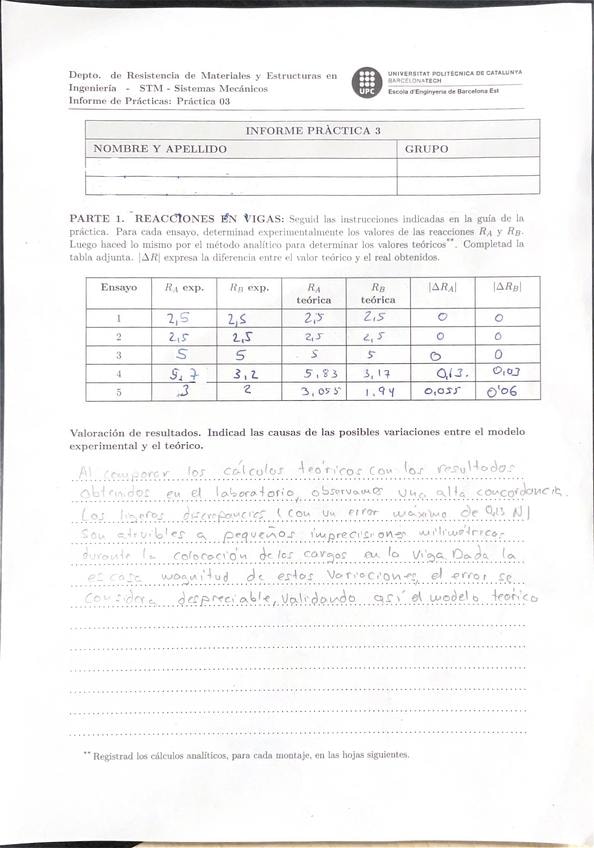 Depto. de Resistencia de Materiales y Estructuras en
Ingeniería - STM - Sistemas Mecánicos
Informe de Prácticas: Práctica 03
UPC
UNIVERSITAT POLITÈCNICA DE CATALUNYA
BARCELONATECH
Escola d'Enginyeria de Barcelona Est
INFORME PRÀCTICA 3
NOMBRE Y APELLIDO GRUPO
PARTE 1. REACCIONES EN VIGAS: Seguid las instrucciones indicadas en la guía de la
práctica. Para cada ensayo, determinad experimentalmente los valores de las reacciones R_A y R_B.
Luego haced lo mismo por el método analítico para determinar los valores teóricos**. Completad la
tabla adjunta. |ΔR| expresa la diferencia entre el valor teórico y el real obtenidos.
Ensayo R_A exp. R_B exp. R_A teórica R_B teórica |ΔR_A| |ΔR_B|
1 2,5 2,5 2,5 2,5 0 0
2 2,5 2,5 2,5 2,5 0 0
3 5 5 5 5 0 0
4 5,7 3,2 5,83 3,17 0,13. 0,03
5 3 2 3,055 1,94 0,055 0'06
Valoración de resultados. Indicad las causas de las posibles variaciones entre el modelo
experimental y el teórico.
Al comparar los cálculos teóricos con los resultados
obtenidos en el laboratorio, observamos una alta concordancia.
Las ligeras discrepancias (con un error máximo de 0,13 N)
son atribuibles a pequeñas imprecisiones milimétricas
durante la colocación de las cargas en la viga. Dada la
escasa magnitud de estas variaciones, el error se
considera despreciable, validando así el modelo teórico
** Registrad los cálculos analíticos, para cada montaje, en las hojas siguientes.